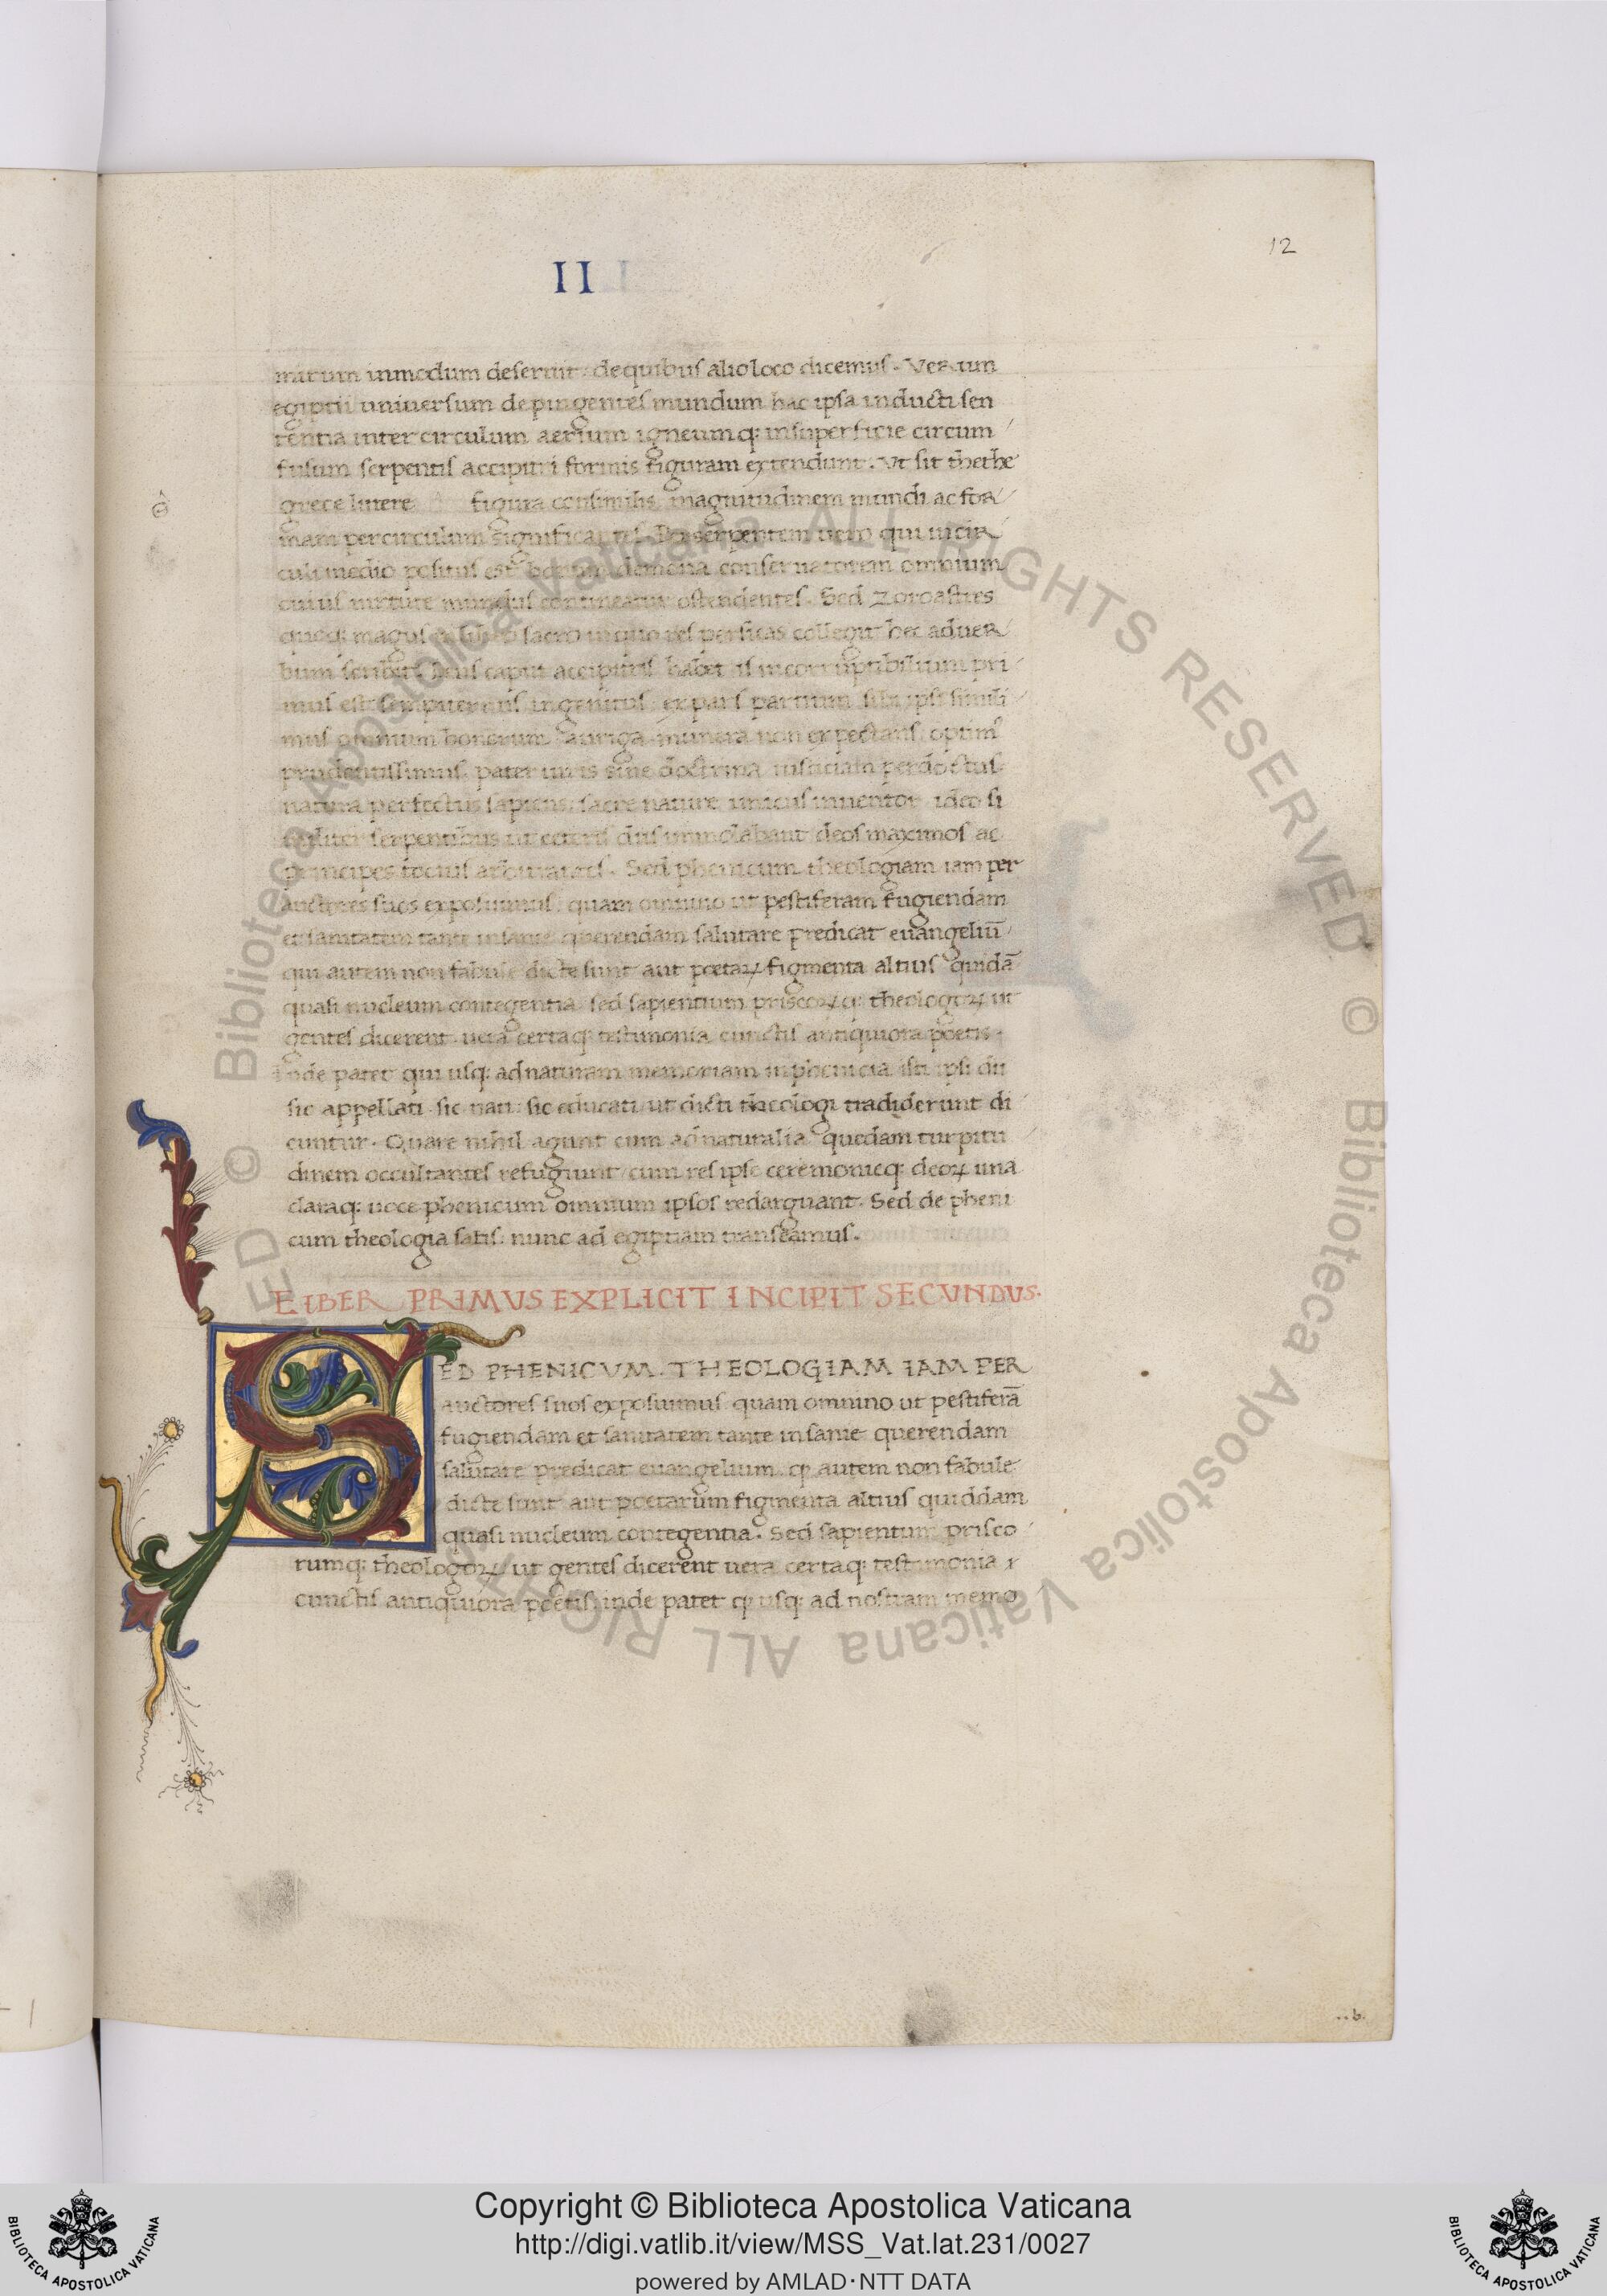 12
II
mirum inmodum deseruit: de quibus alio loco dicemus. Verum
egiptii universum depingentes mundum hac ipsa inducti sen
tentia inter circulum aerium igneumq: insuperficie circum
fusum serpentis accipitri formis figuram extendunt. Vt sit thethe
grece littere figura consimilis magnitudinem mundi ac for
mam per circulum significantes. Per serpentem uero qui in cir
culi medio positus est bonum demona conseruatorem omnium
cuius uirtute mundus contineatur ostendentes. Sed Zoroastres
quoq: magus in libro sacro in quo res persicas collegit hec aduer
bum scribit. Deus caput accipitris habet is incorruptibilium pri
mus est sempiternus ingenitus expars partium sibi ipsi simili
mus omnium bonorum auriga munera non expectans optim9
prudentissimus pater iuris sine doctrina iusticiam perdoctus
natura perfectus sapiens sacre nature unicus inuentor ideo si
militer serpentibus ut ceteris diis immolabant deos maximos ac
principes tocius arbitrantes. Sed phenicum theologiam iam per
auctores suos exposuimus: quam omnino ut pestiferam fugiendam
et sanitatem tante insanie querendam salutare predicat euangeliū
qui autem non fabule dicte sunt aut poetaꝝ figmenta altius quidā
quasi nucleum contegentia sed sapientium priscoꝝ q: theologoꝝ ut
gentes dicerent uera certaq: testimonia cunctis antiquiora poetis.
inde patet qui usq: ad naturam memoriam in phenicia isti ipsi dii
sic appellati sic nati: sic educati ut dicti theologi tradiderunt di
cuntur. Quare nihil agunt cum ad naturalia quedam turpitu
dinem occultantes refugiunt cum res ipse ceremonieq: deoꝝ una
claraq: uoce phenicum omnium ipsos redarguant. Sed de pheni
cum theologia satis: nunc ad egiptiam transeamus.
LIBER PRIMVS EXPLICIT INCIPIT SECVNDVS.
SED PHENICVM THEOLOGIAM IAM PER
auctores suos exposuimus quam omnino ut pestiferā
fugiendam et sanitatem tante insanie querendam
salutare predicat euangelium. ꝙ autem non fabule
dicte sunt aut poetarum figmenta altius quiddam
quasi nucleum contegentia. Sed sapientum prisco
rumq: theologoꝝ ut gentes dicerent uera certaq: testimonia
cunctis antiquiora poetis: inde patet ꝙ usq: ad nostram memo
Copyright © Biblioteca Apostolica Vaticana
http://digi.vatlib.it/view/MSS_Vat.lat.231/0027
powered by AMLAD･NTT DATA